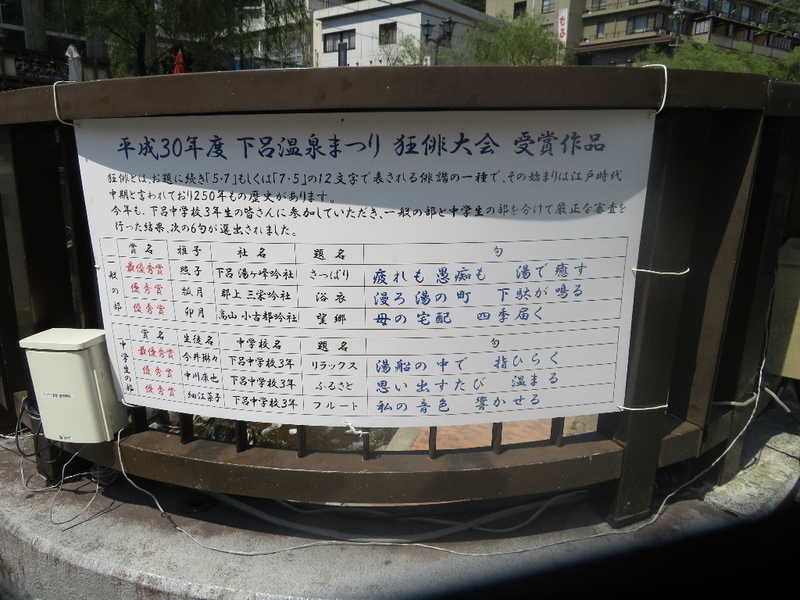 平成30年度 下呂温泉まつり 狂俳大会 受賞作品
狂俳とは、お題に続き「5・7」もしくは「7・5」の12文字で表される俳諧の一種で、その始まりは江戸時代
中期と言われており250年もの歴史があります。
今年も、下呂中学校3年生の皆さんに参加していただき、一般の部と中学生の部を分けて厳正な審査を
行った結果、次の6句が選出されました。
一般の部
賞名 雅子 社名 題名 句
最優秀賞 照子 下呂 湯ヶ峰吟社 さっぱり 疲れも愚痴も 湯で癒す
優秀賞 狐月 郡上 三栄吟社 浴衣 漫ろ湯の町 下駄が鳴る
優秀賞 卯月 高山 小古都吟社 望郷 母の宅配 四季届く
中学生の部
賞名 生徒名 中学校名 題名 句
最優秀賞 今井琳々 下呂中学校3年 リラックス 湯船の中で 指ひらく
優秀賞 中川康也 下呂中学校3年 ふるさと 思い出すたび 温まる
優秀賞 細江菜子 下呂中学校3年 フルート 私の音色 響かせる